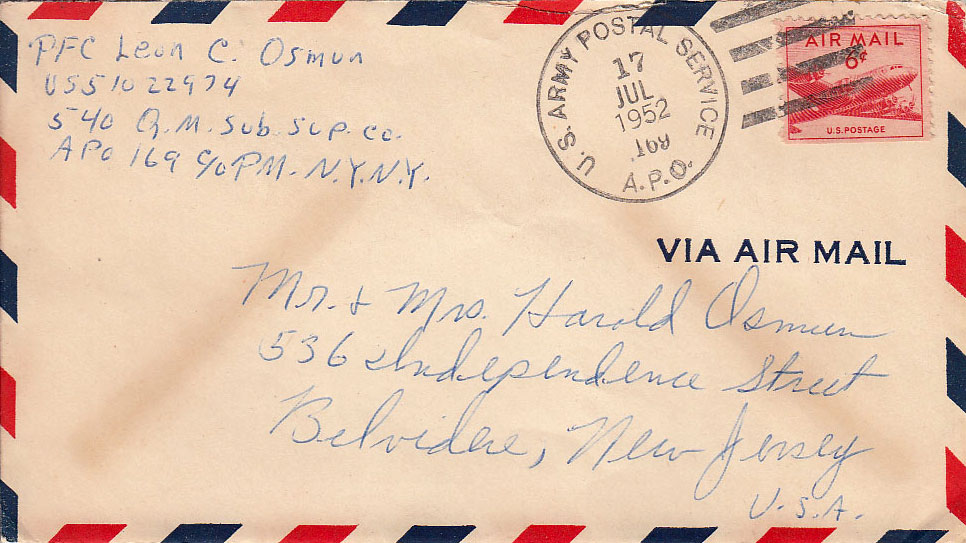 PFC Leon C. Osmun
US51022974
540 Q.M. Sub. Sup. Co.
APO 169 c/o PM. N.Y.N.Y.
U.S. ARMY POSTAL SERVICE
17
JUL
1952
169
A.P.O.
AIR MAIL
6¢
U.S. POSTAGE
VIA AIR MAIL
Mr. & Mrs. Harold Osmun
536 Independence Street
Belvidere, New Jersey
U.S.A.